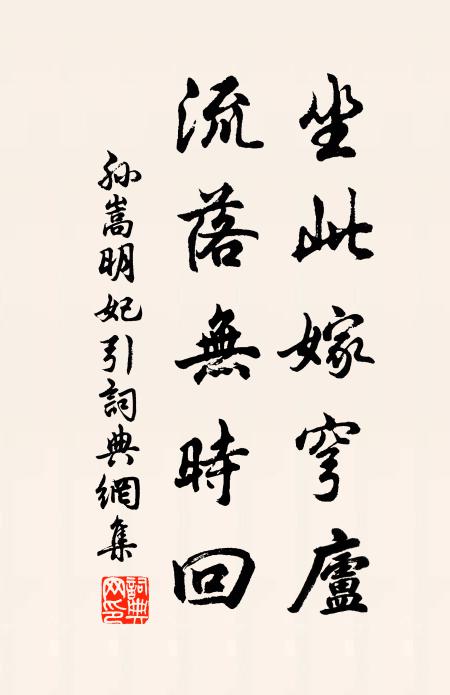 坐此嫁穹廬
流落無時回
孫嵩明妃引詞典網集
詞典網印